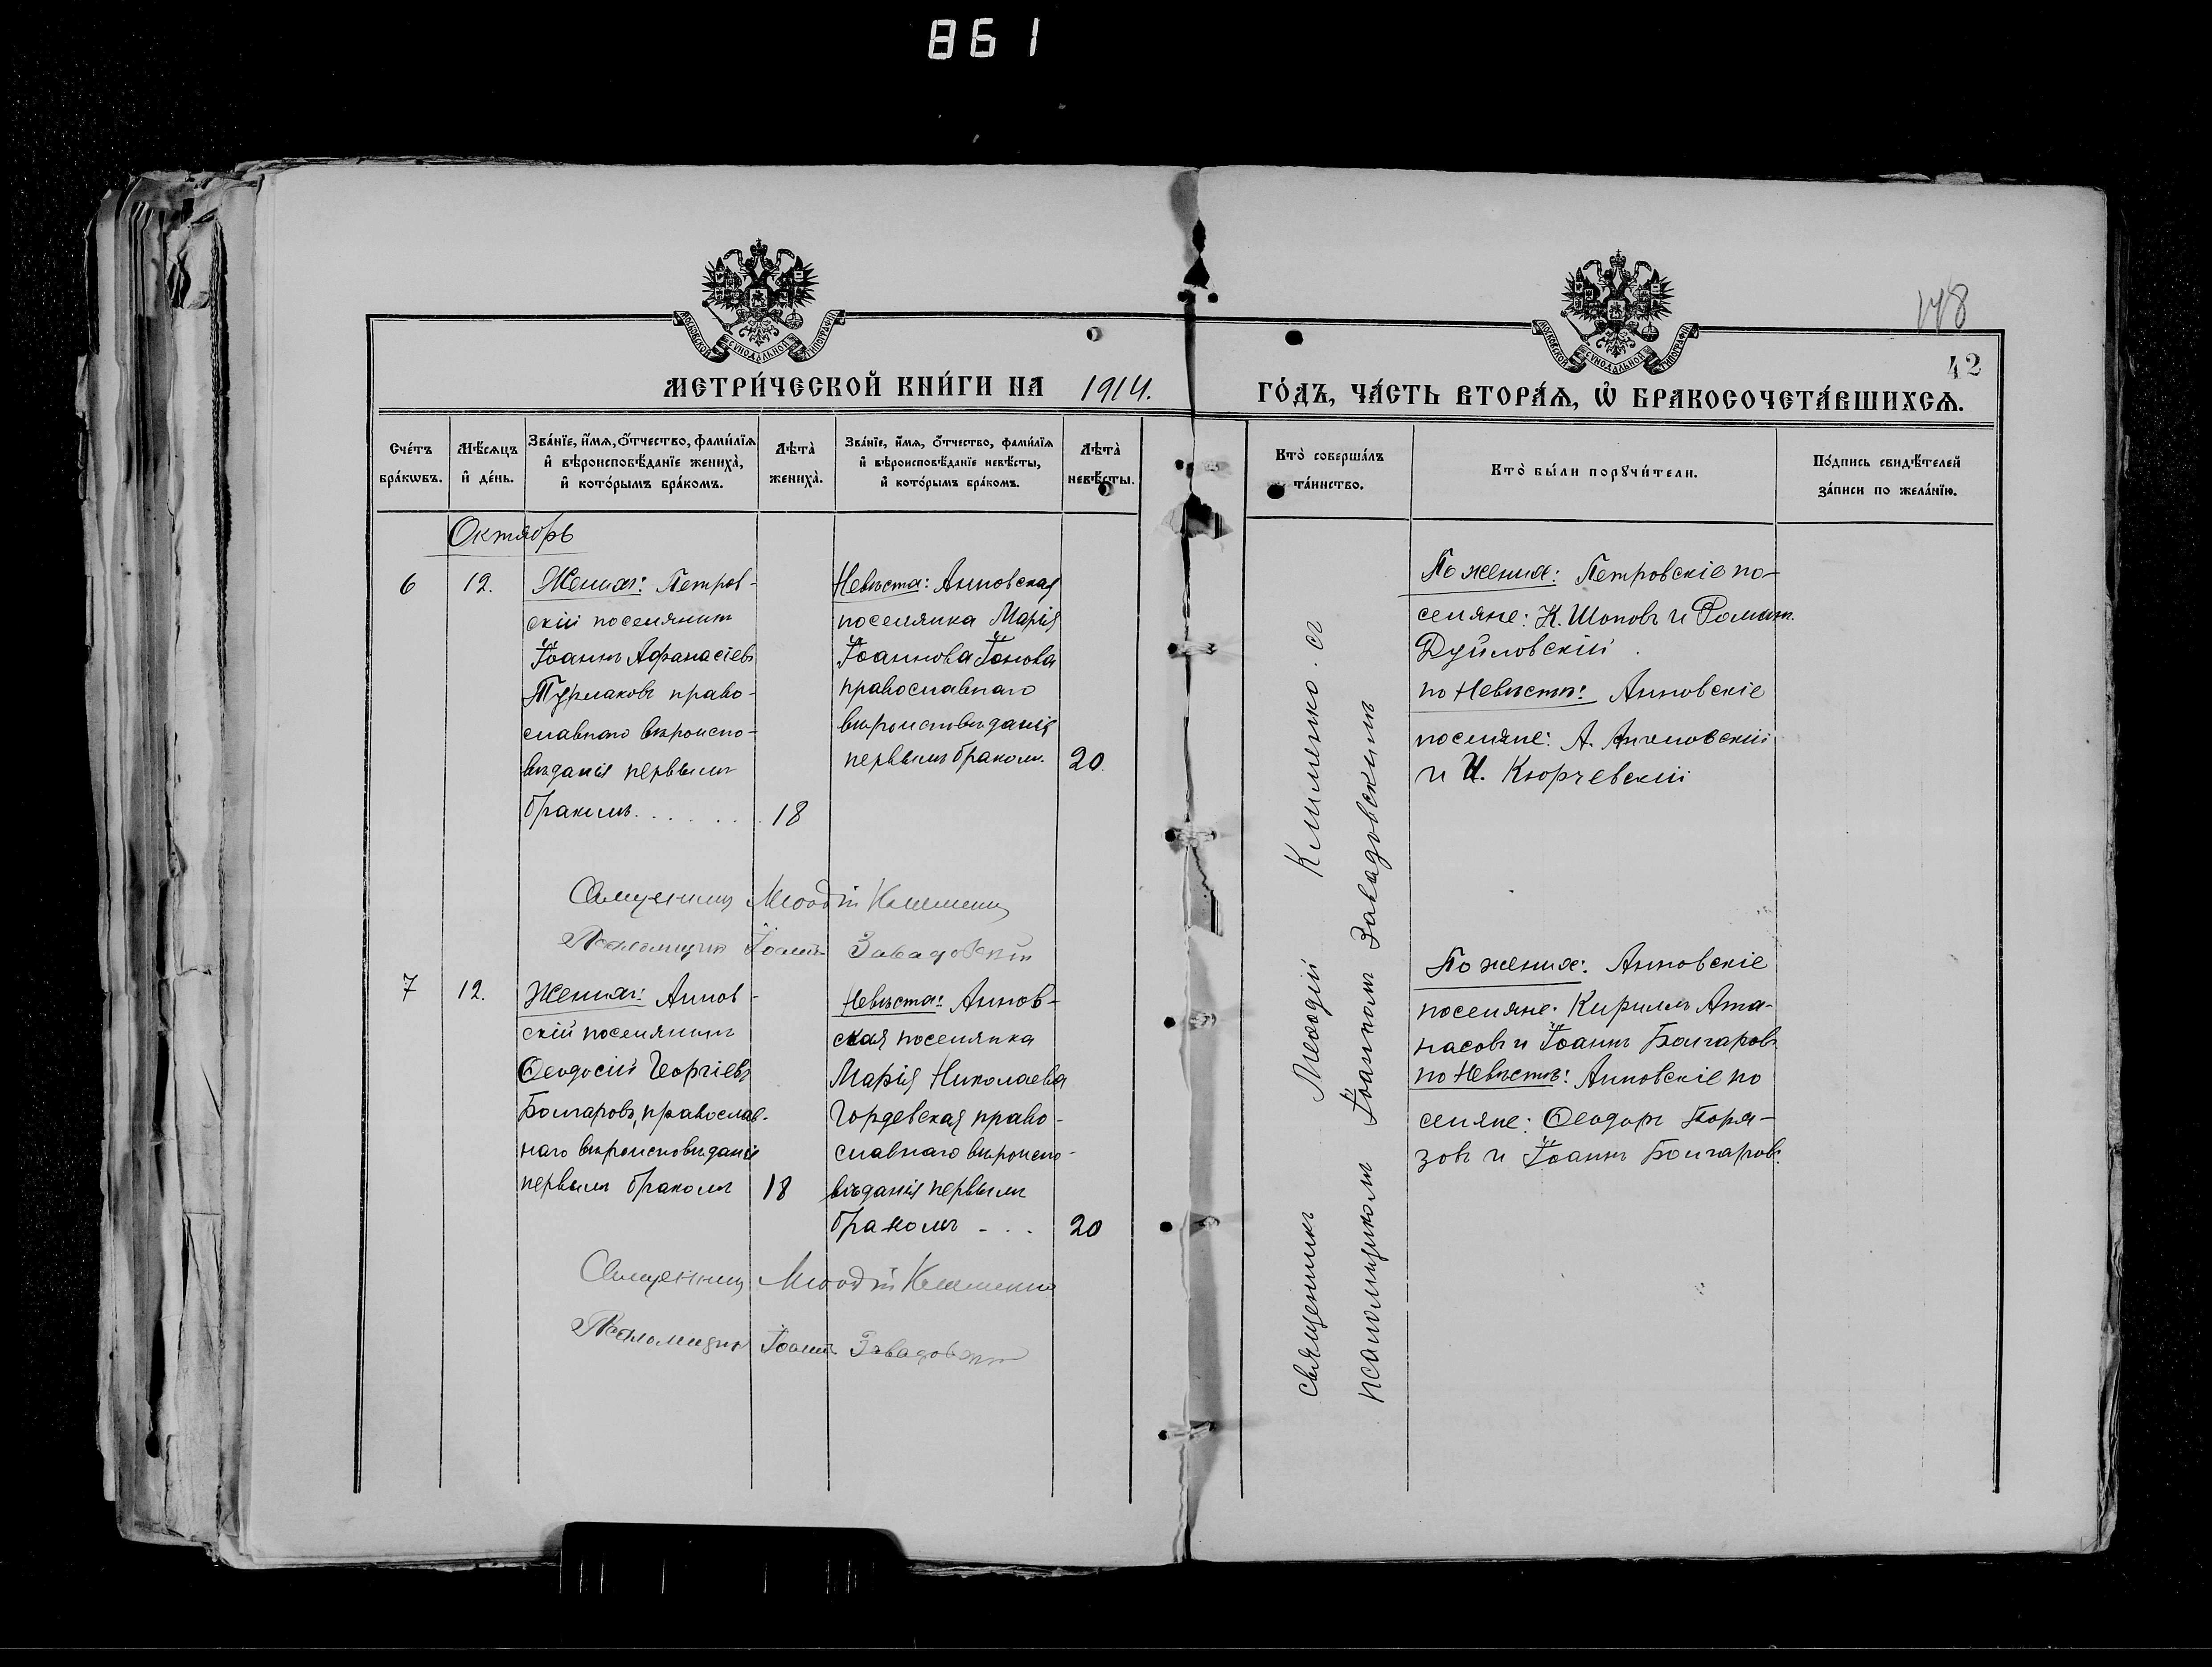 861
148
42
МОСКОВСКОЙ СѴНОДАЛЬНОЙ ТИПОГРАФІИ
МОСКОВСКОЙ СѴНОДАЛЬНОЙ ТИПОГРАФІИ
МЕТРИ́ЧЕСКОЙ КНИ́ГИ НА 1914. ГО́ДЪ, ЧА́СТЬ ВТОРА́Ѧ, Ѡ҆ БРАКОСОЧЕТА́ВШИХСѦ.
Сче́тъ
бра́кѡвъ.
Мѣ́сѧцъ
и҆ де́нь.
Зва́нїе, и҆́мѧ, ѻ҆́тчество, фами́лїѧ
и҆ вѣроисповѣ́данїе жениха̀,
и҆ кото́рымъ бра́комъ.
Лѣта̀
жениха̀.
Зва́нїе, и҆́мѧ, ѻ҆́тчество, фами́лїѧ
и҆ вѣроисповѣ́данїе невѣ́сты,
и҆ кото́рымъ бра́комъ.
Лѣта̀
невѣ́сты.
Кто̀ соверша́лъ
та́инство.
Кто̀ бы́ли порꙋчи́тели.
По́дпись свидѣ́телей
за́писи по жела́нїю.
Октябрь
6
12.
Женихъ: Петров-
скій поселянинъ
Іоаннъ Афанасіевъ
Турлаковъ право-
славнаго вѣроиспо-
вѣданія первымъ
бракомъ. . . . . . .
18
Невѣста: Анновская
поселянка Марія
Іоаннова Іонова
православнаго
вѣроисповѣданія
первымъ бракомъ.
20.
По женихѣ: Петровскіе по-
селяне: К. Шоповъ и Романъ
Дуйловскій.
по Невѣстѣ: Анновскіе
поселяне: А. Ангеловскій
и И. Кюрчевскій
Священникъ Меѳодій Клименко
Псаломщикъ Іоаннъ Завадовскій
7
12.
Женихъ: Аннов-
скій поселянинъ
Ѳеодосій Георгіевъ
Болгаровъ, православ-
наго вѣроисповѣданія
первымъ бракомъ
18
Невѣста: Аннов-
ская поселянка
Марія Николаева
Гордевская право-
славнаго вѣроиспо-
вѣданія первымъ
бракомъ - . .
20
По женихѣ: Анновскіе
поселяне: Кириллъ Ата-
насовъ и Іоаннъ Болгаровъ.
по Невѣстѣ: Анновскіе по
селяне: Ѳеодоръ
зовъ и Іоаннъ Болгаровъ.
Священникъ Меѳодій Клименко
Псаломщикъ Іоаннъ Завадовскій
священникъ Меѳодій Клименко. съ
псаломщикомъ Іоанномъ Завадовскимъ